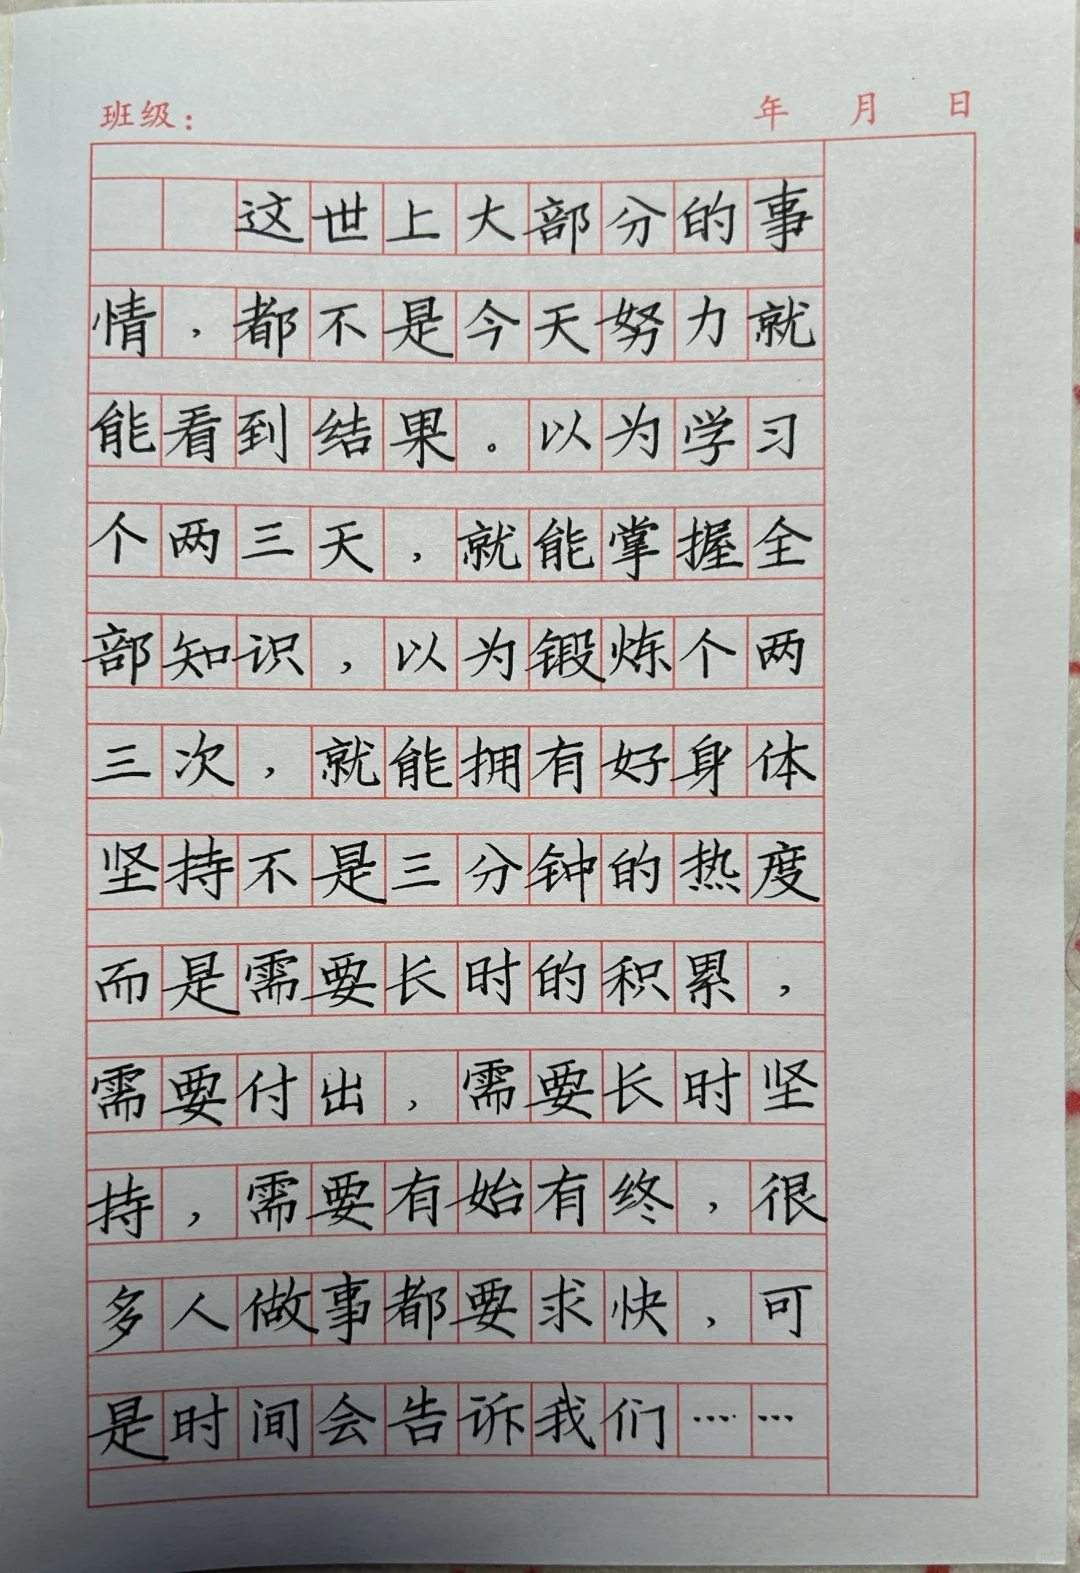 班级： 年 月 日
这世上大部分的事
情，都不是今天努力就
能看到结果。以为学习
个两三天，就能掌握全
部知识，以为锻炼个两
三次，就能拥有好身体
坚持不是三分钟的热度
而是需要长时的积累，
需要付出，需要长时坚
持，需要有始有终，很
多人做事都要求快，可
是时间会告诉我们……